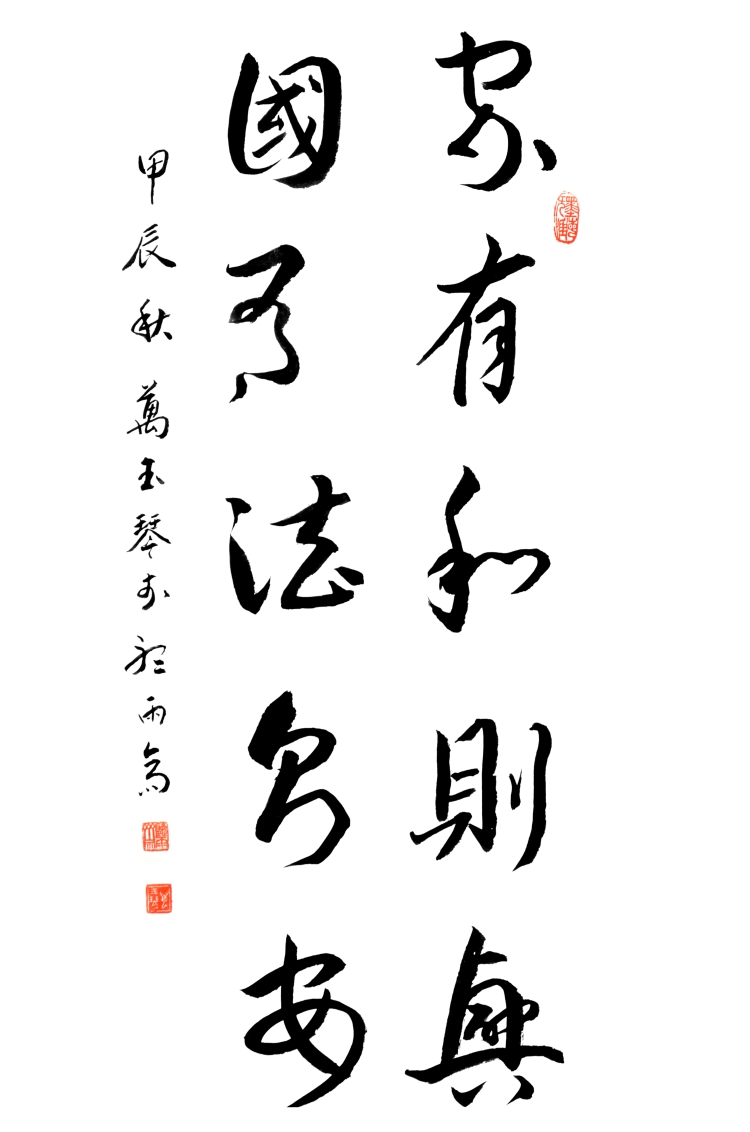 家有和則興
國有法則安
甲辰秋 萬玉琴於聽雨齋